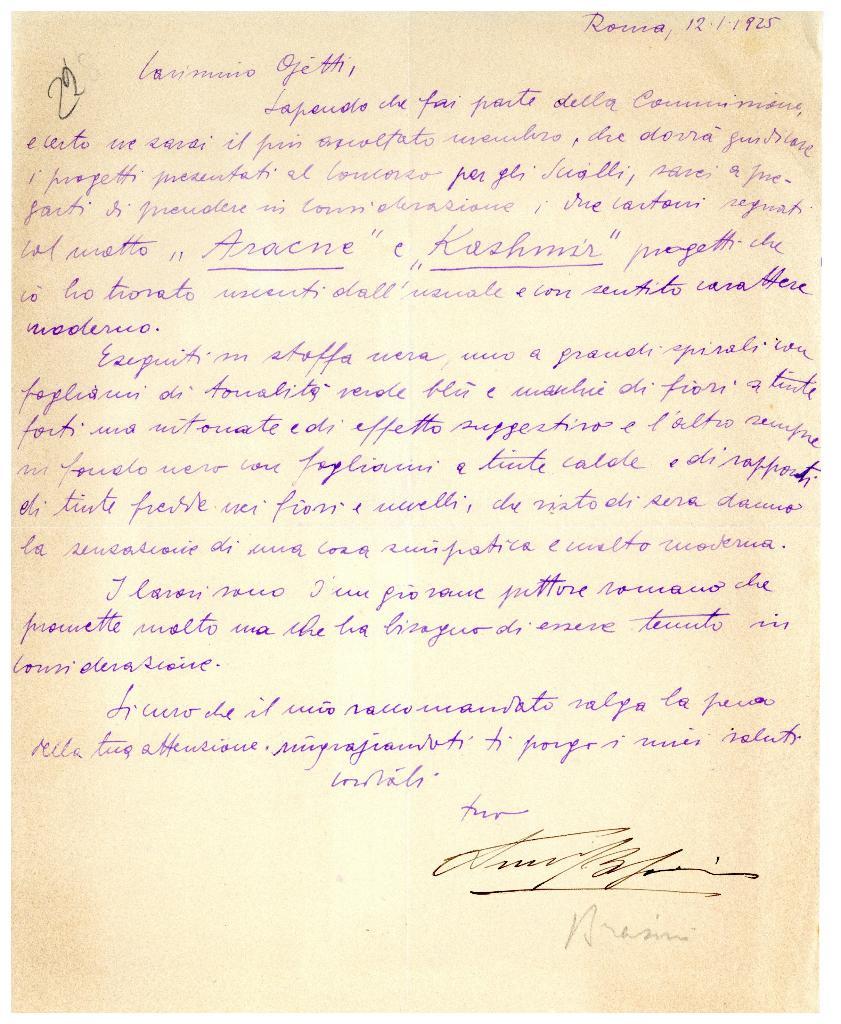 Roma, 12.1.1925
29
Carissimo Ojetti,
Sapendo che fai parte della Commissione,
e certo ne sarai il più ascoltato membro, che dovrà giudicare
i progetti presentati al Concorso per gli Scialli, sarei a pre-
garti di prendere in considerazione i due cartoni segnati
col motto „Aracne" e „Kashmir" progetti che
io ho trovato uscenti dall'usuale e con sentito carattere
moderno.
Eseguiti in stoffa nera, uno a grandi spirali con
fogliami di tonalità verde blù e macchie di fiori a tinte
forti ma intonate e di effetto suggestivo e l'altro sempre
in fondo nero con fogliami a tinte calde e di rapporti
di tinte fredde nei fiori e uccelli, che visto di sera danno
la sensazione di una cosa simpatica e molto moderna.
I lavori sono d'un giovane pittore romano che
promette molto ma che ha bisogno di essere tenuto in
considerazione.
Sicuro che il mio raccomandato valga la pena
della tua attenzione. ringraziandoti ti porgo i miei saluti
cordiali
tuo
Brasini